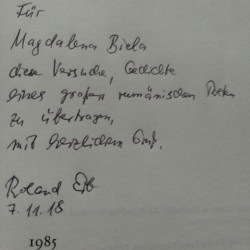 Für
Magdalena Biela
diese Versuche, Gedichte
eines großen rumänischen Poeten
zu übertragen,
mit herzlichem Gruß.
Roland Erb
7.11.18
1985